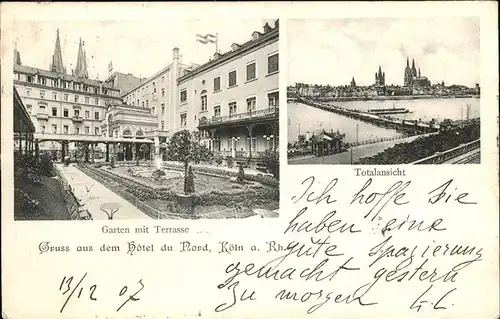 Garten mit Terrasse
Totalansicht
Gruss aus dem Hôtel du Nord, Köln a. Rh.
13/12 07
Ich hoffe Sie
haben eine
gute Spazierung
gemacht gestern
Zu morgen